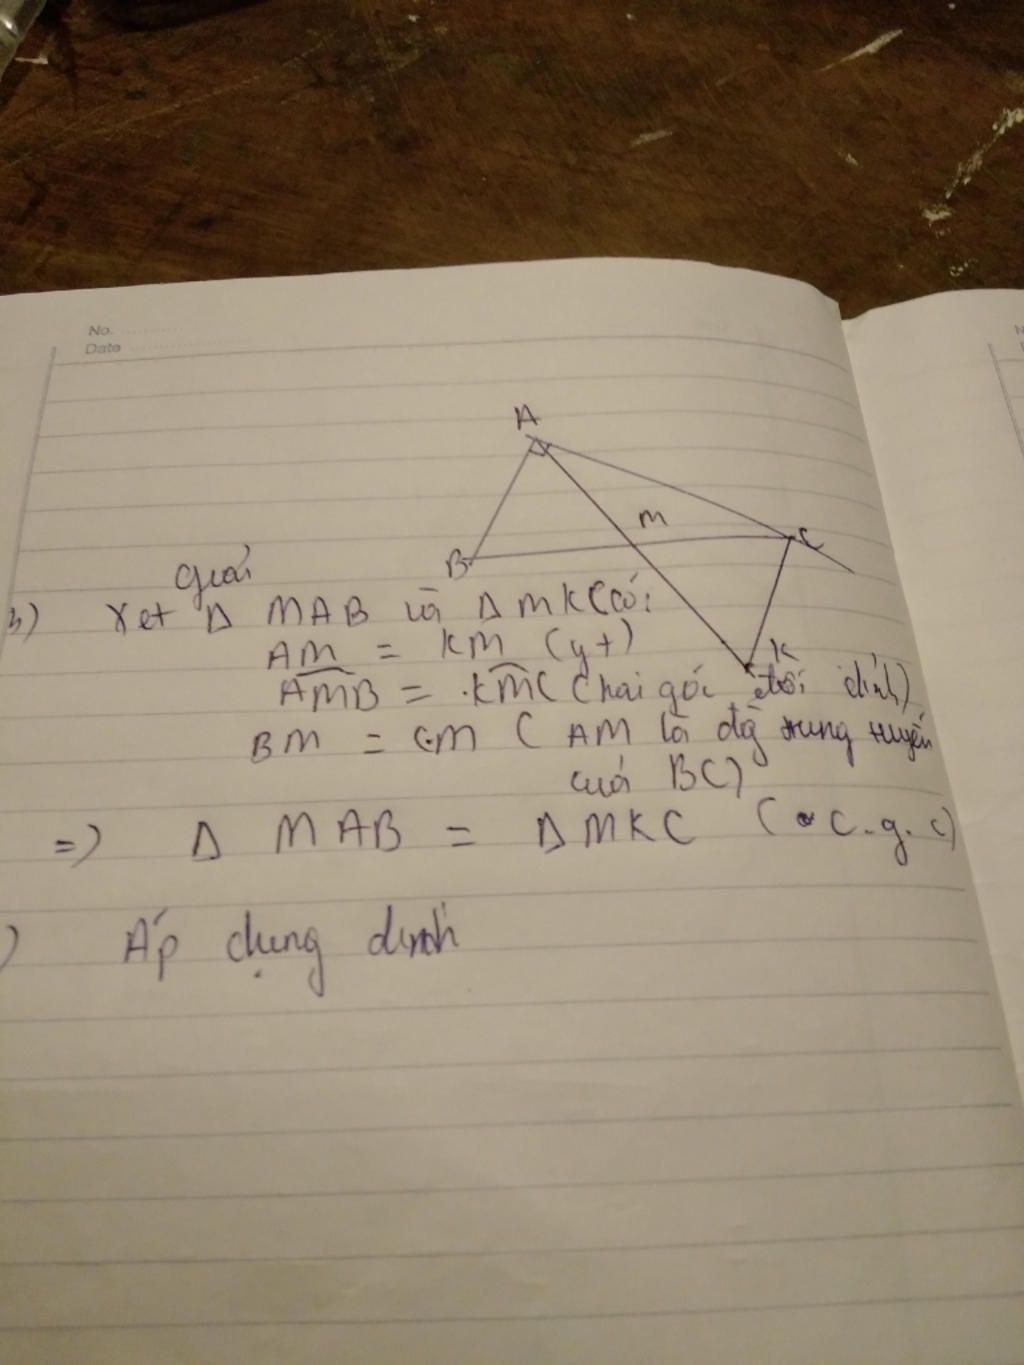 No.
Date
A
M
B
C
K
Giải
b) Xet Δ MAB và Δ MKC có:
AM = KM (gt)
AMB = KMC (hai góc đối đỉnh)
BM = CM ( AM là đg trung tuyến
cuả BC)
=> Δ MAB = Δ MKC ( c.g.c)
) Áp dụng định